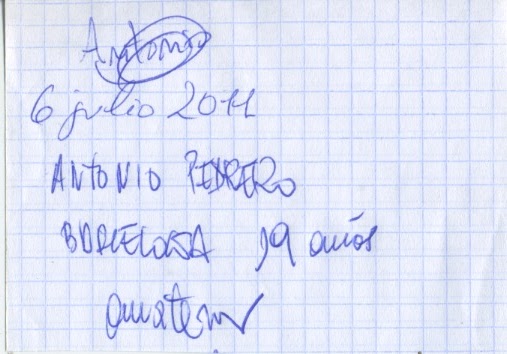 Antonio
6 julio 2011
ANTONIO PEDRERO
BARCELONA 19 años
amateur